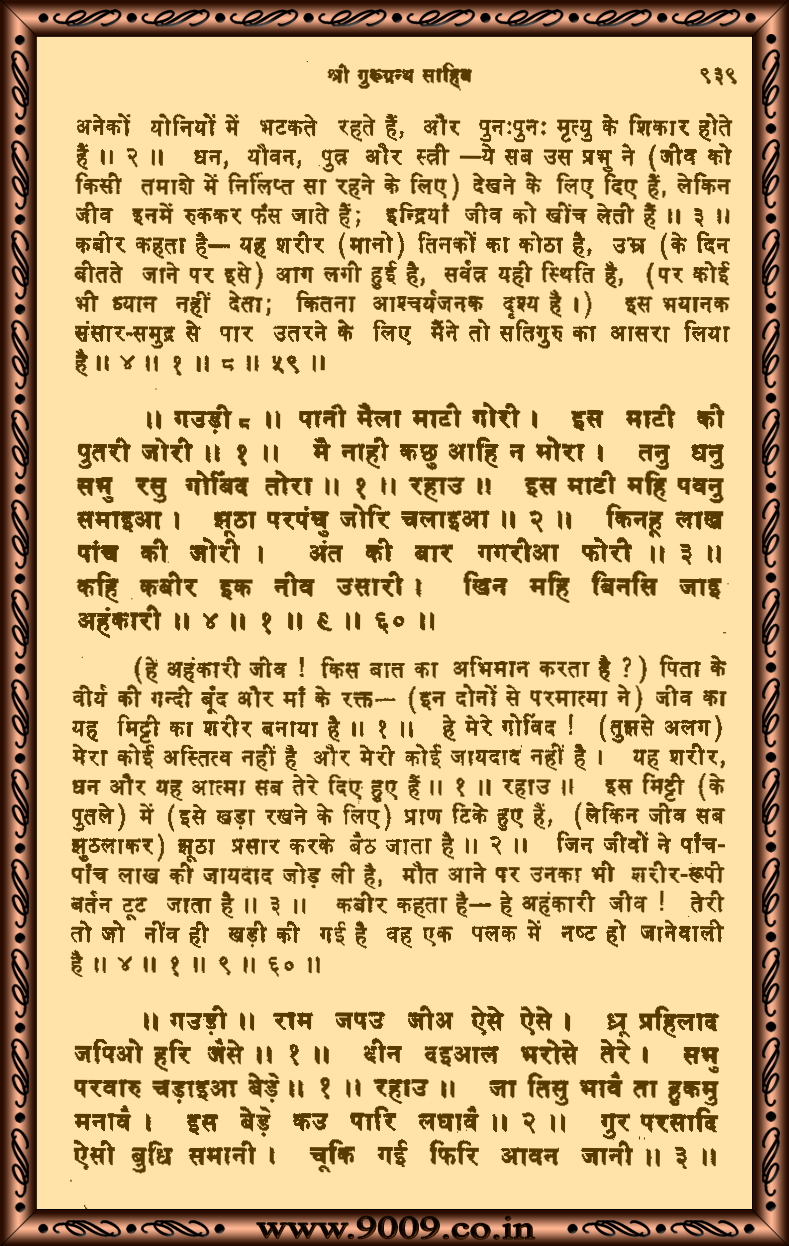 श्री गुरूग्रन्थ साहिब ९३९
अनेकों योनियों में भटकते रहते हैं, और पुनःपुनः मृत्यु के शिकार होते
हैं ॥ २ ॥ धन, यौवन, पुत्र और स्त्री —ये सब उस प्रभु ने (जीव को
किसी तमाशे में निर्लिप्त सा रहने के लिए) देखने के लिए दिए हैं, लेकिन
जीव इनमें रुककर फँस जाते हैं; इन्द्रियाँ जीव को खींच लेती हैं ॥ ३ ॥
कबीर कहता है— यह शरीर (मानो) तिनकों का कोठा है, उम्र (के दिन
बीतते जाने पर इसे) आग लगी हुई है, सर्वत्र यही स्थिति है, (पर कोई
भी ध्यान नहीं देता; कितना आश्चर्यजनक दृश्य है ।) इस भयानक
संसार-समुद्र से पार उतरने के लिए मैंने तो सतिगुरु का आसरा लिया
है ॥ ४ ॥ १ ॥ ८ ॥ ५९ ॥
॥ गउड़ी ८ ॥ पानी मैला माटी गोरी । इस माटी की
पुतरी जोरी ॥ १ ॥ मै नाही कछु आहि न मोरा । तनु धनु
सभु रसु गोबिंद तोरा ॥ १ ॥ रहाउ ॥ इस माटी महि पवनु
समाइआ । झूठा परपंचु जोरि चलाइआ ॥ २ ॥ किनहू लाख
पांच की जोरी । अंत की बार गगरीआ फोरी ॥ ३ ॥
कहि कबीर इक नीव उसारी । खिन महि बिनसि जाइ
अहंकारी ॥ ४ ॥ १ ॥ ९ ॥ ६० ॥
(हे अहंकारी जीव ! किस बात का अभिमान करता है ?) पिता के
वीर्य की गन्दी बूँद और माँ के रक्त— (इन दोनों से परमात्मा ने) जीव का
यह मिट्टी का शरीर बनाया है ॥ १ ॥ हे मेरे गोविंद ! (तुझसे अलग)
मेरा कोई अस्तित्व नहीं है और मेरी कोई जायदाद नहीं है । यह शरीर,
धन और यह आत्मा सब तेरे दिए हुए हैं ॥ १ ॥ रहाउ ॥ इस मिट्टी (के
पुतले) में (इसे खड़ा रखने के लिए) प्राण टिके हुए हैं, (लेकिन जीव सब
झुठलाकर) झूठा प्रसार करके बैठ जाता है ॥ २ ॥ जिन जीवों ने पाँच-
पाँच लाख की जायदाद जोड़ ली है, मौत आने पर उनका भी शरीर-रूपी
बर्तन टूट जाता है ॥ ३ ॥ कबीर कहता है— हे अहंकारी जीव ! तेरी
तो जो नींव ही खड़ी की गई है वह एक पलक में नष्ट हो जानेवाली
है ॥ ४ ॥ १ ॥ ९ ॥ ६० ॥
॥ गउड़ी ॥ राम जपउ जीअ ऐसे ऐसे । ध्रू प्रहिलाद
जपिओ हरि जैसे ॥ १ ॥ दीन दइआल भरोसे तेरे । सभु
परवारु चड़ाइआ बेड़े ॥ १ ॥ रहाउ ॥ जा तिसु भावै ता हुकमु
मनावै । इस बेड़े कउ पारि लघावै ॥ २ ॥ गुर परसादि
ऐसी बुधि समानी । चूकि गई फिरि आवन जानी ॥ ३ ॥
www.9009.co.in